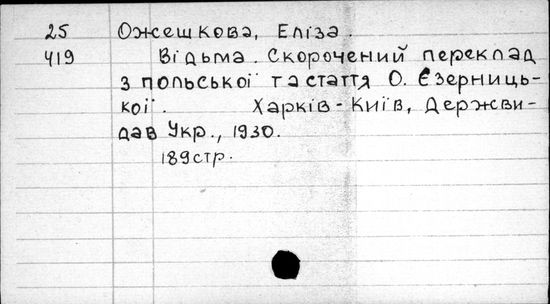 25 Ожешкова, Еліза.
419 Відьма. Скорочений переклад
з польської та стаття О. Єзерниць-
кої. Харків-Київ, Держви-
дав Укр., 1930.
189стр.